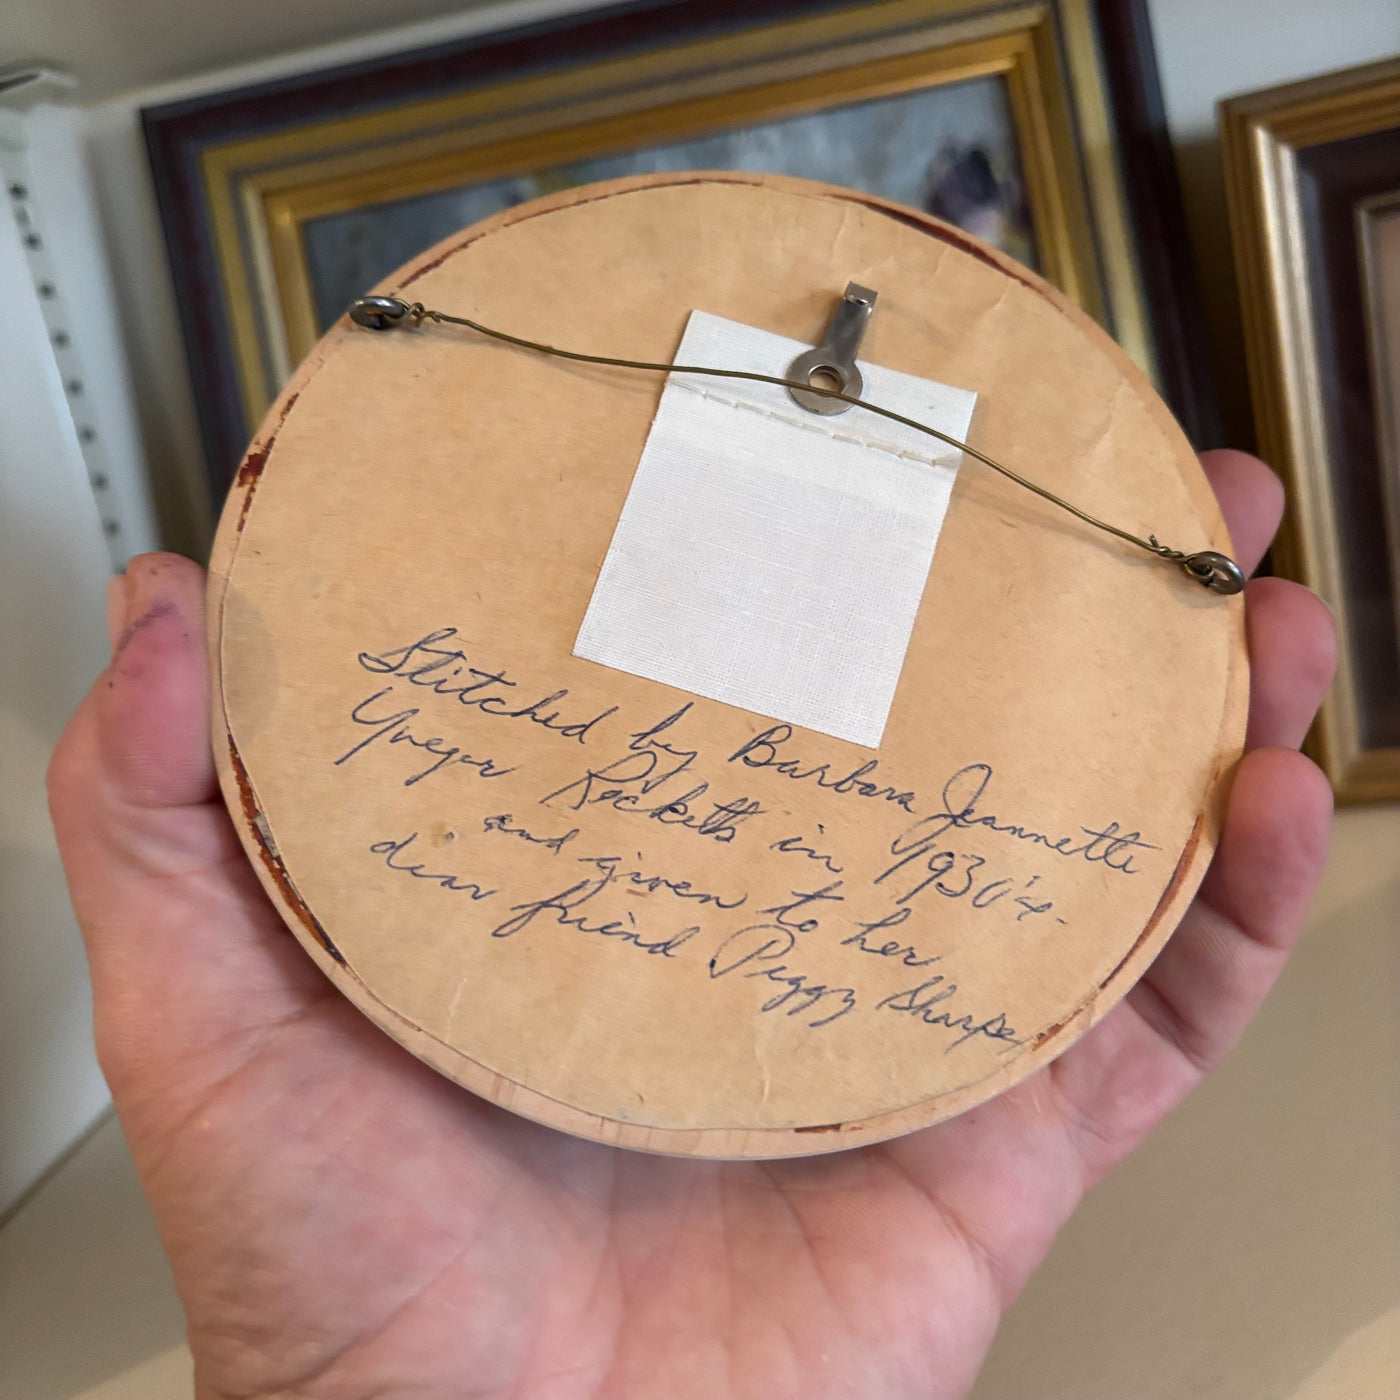 Stitched by Barbara Jeannette
Yueger Ricketts in 1930's
and given to her
dear friend Peggy Sharpe